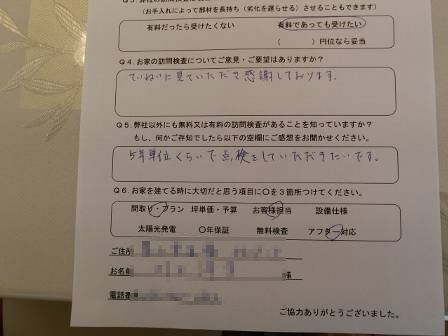 (お手入れによって部材を長持ち(劣化を遅らせる)させることもできます)
有料だったら受けたくない 有料であっても受けたい
( )円位なら妥当
Q4.お家の訪問検査についてご意見・ご要望はありますか?
ていねいに見ていただいて感謝しております。
Q5.弊社以外にも無料又は有料の訪問検査があることを知っていますか?
もし、何かご存知でしたら以下の空欄にご感想をお聞かせください。
5年単位くらいで点検をしていただきたいです。
Q6.お家を建てる時に大切だと思う項目に〇を3箇所つけてください。
間取り・プラン 坪単価・予算 お客様担当 設備仕様
太陽光発電 〇年保証 無料検査 アフター対応
ご住所
お名前 様
電話番
ご協力ありがとうございました。